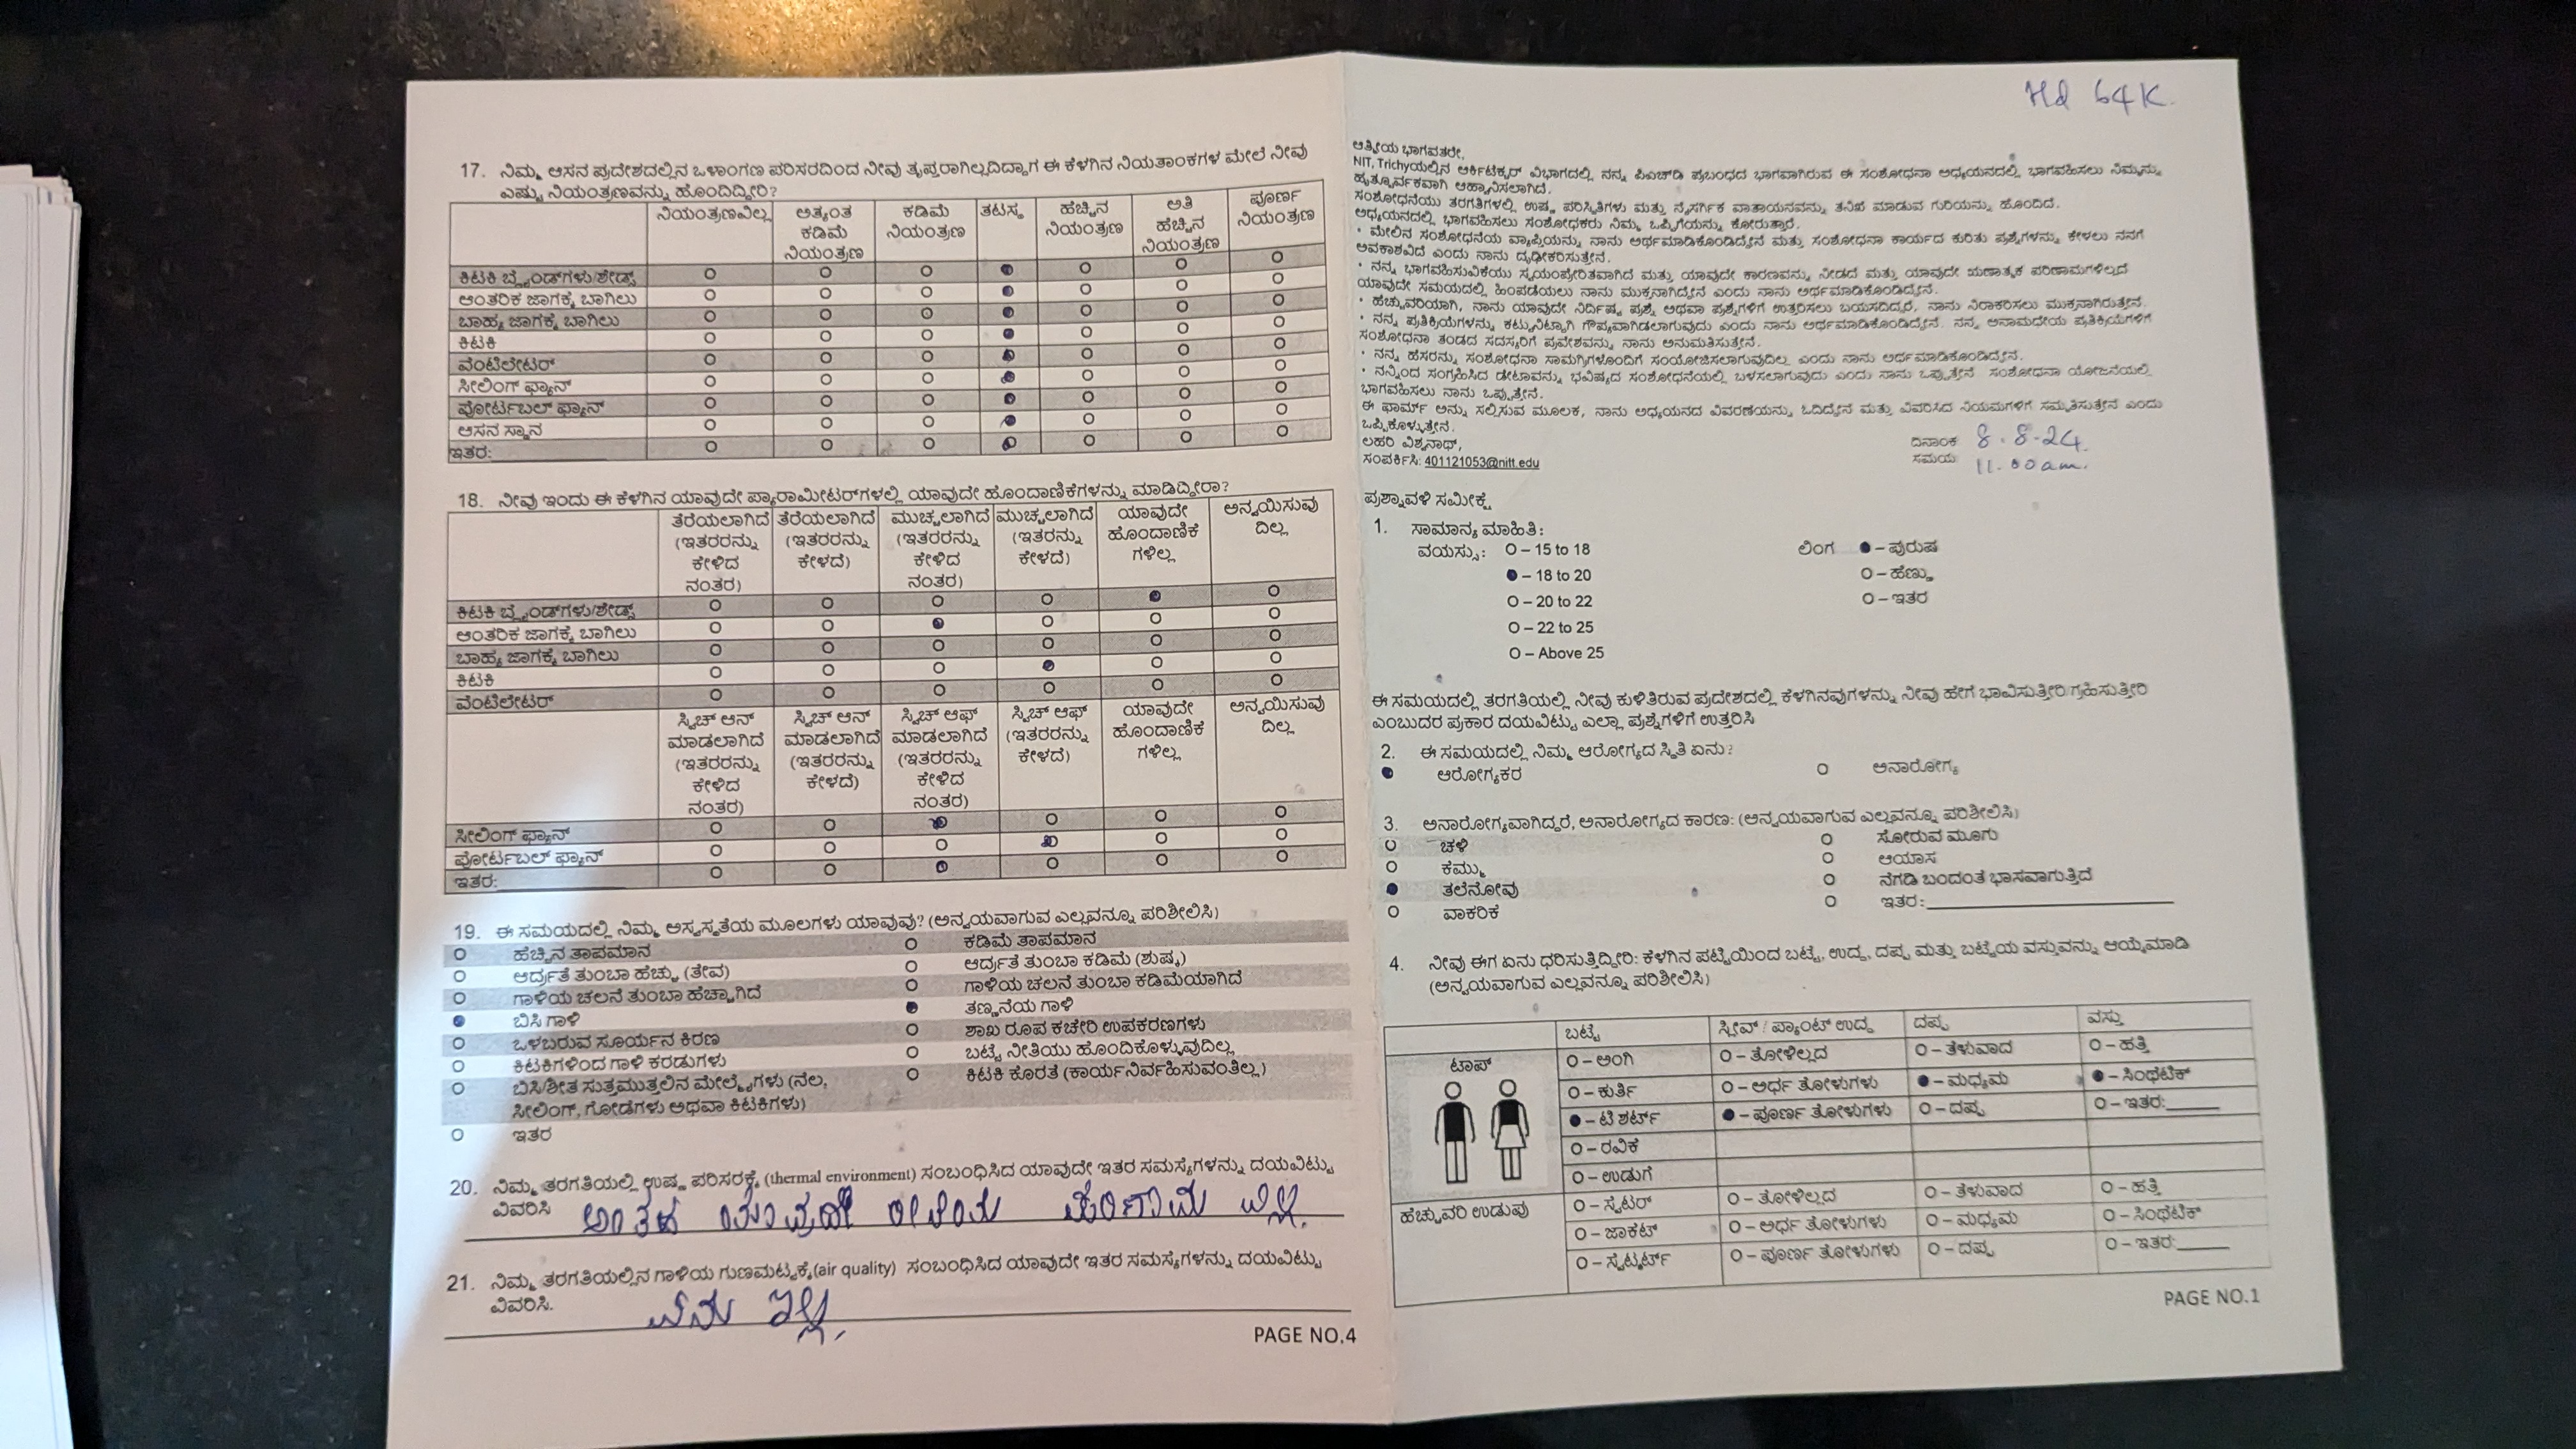 17. ನಿಮ್ಮ ಆಸನ ಪ್ರದೇಶದಲ್ಲಿನ ಒಳಾಂಗಣ ಪರಿಸರದಿಂದ ನೀವು ತೃಪ್ತರಾಗಿಲ್ಲದಿದ್ದಾಗ ಈ ಕೆಳಗಿನ ನಿಯತಾಂಕಗಳ ಮೇಲೆ ನೀವು
ಎಷ್ಟು ನಿಯಂತ್ರಣವನ್ನು ಹೊಂದಿದ್ದೀರಿ?
ನಿಯಂತ್ರಣವಿಲ್ಲ ಅತ್ಯಂತ ಕಡಿಮೆ ನಿಯಂತ್ರಣ ಕಡಿಮೆ ನಿಯಂತ್ರಣ ತಟಸ್ಥ ಹೆಚ್ಚಿನ ನಿಯಂತ್ರಣ ಅತಿ ಹೆಚ್ಚಿನ ನಿಯಂತ್ರಣ ಪೂರ್ಣ ನಿಯಂತ್ರಣ
ಕಿಟಕಿ ಬ್ಲೈಂಡ್‌ಗಳು/ಶೇಡ್ಸ್
ಆಂತರಿಕ ಜಾಗಕ್ಕೆ ಬಾಗಿಲು
ಬಾಹ್ಯ ಜಾಗಕ್ಕೆ ಬಾಗಿಲು
ಕಿಟಕಿ
ವೆಂಟಿಲೇಟರ್
ಸೀಲಿಂಗ್ ಫ್ಯಾನ್
ಪೋರ್ಟಬಲ್ ಫ್ಯಾನ್
ಆಸನ ಸ್ಥಾನ
ಇತರ:
18. ನೀವು ಇಂದು ಈ ಕೆಳಗಿನ ಯಾವುದೇ ಪ್ಯಾರಾಮೀಟರ್‌ಗಳಲ್ಲಿ ಯಾವುದೇ ಹೊಂದಾಣಿಕೆಗಳನ್ನು ಮಾಡಿದ್ದೀರಾ?
ತೆರೆಯಲಾಗಿದೆ (ಇತರರನ್ನು ಕೇಳಿದ ನಂತರ) ತೆರೆಯಲಾಗಿದೆ (ಇತರರನ್ನು ಕೇಳದೆ) ಮುಚ್ಚಲಾಗಿದೆ (ಇತರರನ್ನು ಕೇಳಿದ ನಂತರ) ಮುಚ್ಚಲಾಗಿದೆ (ಇತರನ್ನು ಕೇಳದೆ) ಯಾವುದೇ ಹೊಂದಾಣಿಕೆ ಗಳಿಲ್ಲ ಅನ್ವಯಿಸುವು ದಿಲ್ಲ
ಕಿಟಕಿ ಬ್ಲೈಂಡ್‌ಗಳು/ಶೇಡ್ಸ್
ಆಂತರಿಕ ಜಾಗಕ್ಕೆ ಬಾಗಿಲು
ಬಾಹ್ಯ ಜಾಗಕ್ಕೆ ಬಾಗಿಲು
ಕಿಟಕಿ
ವೆಂಟಿಲೇಟರ್
ಸ್ವಿಚ್ ಆನ್ ಮಾಡಲಾಗಿದೆ (ಇತರರನ್ನು ಕೇಳಿದ ನಂತರ) ಸ್ವಿಚ್ ಆನ್ ಮಾಡಲಾಗಿದೆ (ಇತರರನ್ನು ಕೇಳದೆ) ಸ್ವಿಚ್ ಆಫ್ ಮಾಡಲಾಗಿದೆ (ಇತರರನ್ನು ಕೇಳಿದ ನಂತರ) ಸ್ವಿಚ್ ಆಫ್ (ಇತರರನ್ನು ಕೇಳದೆ) ಯಾವುದೇ ಹೊಂದಾಣಿಕೆ ಗಳಿಲ್ಲ ಅನ್ವಯಿಸುವು ದಿಲ್ಲ
ಸೀಲಿಂಗ್ ಫ್ಯಾನ್
ಪೋರ್ಟಬಲ್ ಫ್ಯಾನ್
ಇತರ:
19. ಈ ಸಮಯದಲ್ಲಿ ನಿಮ್ಮ ಅಸ್ವಸ್ಥತೆಯ ಮೂಲಗಳು ಯಾವುವು? (ಅನ್ವಯವಾಗುವ ಎಲ್ಲವನ್ನೂ ಪರಿಶೀಲಿಸಿ)
ಹೆಚ್ಚಿನ ತಾಪಮಾನ ಕಡಿಮೆ ತಾಪಮಾನ
ಆರ್ದ್ರತೆ ತುಂಬಾ ಹೆಚ್ಚು (ತೇವ) ಆರ್ದ್ರತೆ ತುಂಬಾ ಕಡಿಮೆ (ಶುಷ್ಕ)
ಗಾಳಿಯ ಚಲನೆ ತುಂಬಾ ಹೆಚ್ಚಾಗಿದೆ ಗಾಳಿಯ ಚಲನೆ ತುಂಬಾ ಕಡಿಮೆಯಾಗಿದೆ
ಬಿಸಿ ಗಾಳಿ ತಣ್ಣನೆಯ ಗಾಳಿ
ಒಳಬರುವ ಸೂರ್ಯನ ಕಿರಣ ಶಾಖ ರೂಪ ಕಚೇರಿ ಉಪಕರಣಗಳು
ಕಿಟಕಿಗಳಿಂದ ಗಾಳಿ ಕರಡುಗಳು ಬಟ್ಟೆ ನೀತಿಯು ಹೊಂದಿಕೊಳ್ಳುವುದಿಲ್ಲ
ಬಿಸಿ/ಶೀತ ಸುತ್ತಮುತ್ತಲಿನ ಮೇಲ್ಮೈಗಳು (ನೆಲ, ಕಿಟಕಿ ಕೊರತೆ (ಕಾರ್ಯನಿರ್ವಹಿಸುವಂತಿಲ್ಲ)
ಸೀಲಿಂಗ್, ಗೋಡೆಗಳು ಅಥವಾ ಕಿಟಕಿಗಳು)
ಇತರ
20. ನಿಮ್ಮ ತರಗತಿಯಲ್ಲಿ ಉಷ್ಣ ಪರಿಸರಕ್ಕೆ (thermal environment) ಸಂಬಂಧಿಸಿದ ಯಾವುದೇ ಇತರ ಸಮಸ್ಯೆಗಳನ್ನು ದಯವಿಟ್ಟು
ವಿವರಿಸಿ
21. ನಿಮ್ಮ ತರಗತಿಯಲ್ಲಿನ ಗಾಳಿಯ ಗುಣಮಟ್ಟಕ್ಕೆ(air quality) ಸಂಬಂಧಿಸಿದ ಯಾವುದೇ ಇತರ ಸಮಸ್ಯೆಗಳನ್ನು ದಯವಿಟ್ಟು
ವಿವರಿಸಿ. ಏನು ಇಲ್ಲ.
PAGE NO.4
Hd 64K.
ಆತ್ಮೀಯ ಭಾಗವತರೇ,
NIT, Trichyಯಲ್ಲಿನ ಆರ್ಕಿಟೆಕ್ಚರ್ ವಿಭಾಗದಲ್ಲಿ ನನ್ನ ಪಿಎಚ್‌ಡಿ ಪ್ರಬಂಧದ ಭಾಗವಾಗಿರುವ ಈ ಸಂಶೋಧನಾ ಅಧ್ಯಯನದಲ್ಲಿ ಭಾಗವಹಿಸಲು ನಿಮ್ಮನ್ನು
ಹೃತ್ಪೂರ್ವಕವಾಗಿ ಆಹ್ವಾನಿಸಲಾಗಿದೆ.
ಸಂಶೋಧನೆಯು ತರಗತಿಗಳಲ್ಲಿ ಉಷ್ಣ ಪರಿಸ್ಥಿತಿಗಳು ಮತ್ತು ನೈಸರ್ಗಿಕ ವಾತಾಯನವನ್ನು ತನಿಖೆ ಮಾಡುವ ಗುರಿಯನ್ನು ಹೊಂದಿದೆ.
ಅಧ್ಯಯನದಲ್ಲಿ ಭಾಗವಹಿಸಲು ಸಂಶೋಧಕರು ನಿಮ್ಮ ಒಪ್ಪಿಗೆಯನ್ನು ಕೋರುತ್ತಾರೆ.
• ಮೇಲಿನ ಸಂಶೋಧನೆಯ ವ್ಯಾಪ್ತಿಯನ್ನು ನಾನು ಅರ್ಥಮಾಡಿಕೊಂಡಿದ್ದೇನೆ ಮತ್ತು ಸಂಶೋಧನಾ ಕಾರ್ಯದ ಕುರಿತು ಪ್ರಶ್ನೆಗಳನ್ನು ಕೇಳಲು ನನಗೆ
ಅವಕಾಶವಿದೆ ಎಂದು ನಾನು ದೃಢೀಕರಿಸುತ್ತೇನೆ.
• ನನ್ನ ಭಾಗವಹಿಸುವಿಕೆಯು ಸ್ವಯಂಪ್ರೇರಿತವಾಗಿದೆ ಮತ್ತು ಯಾವುದೇ ಕಾರಣವನ್ನು ನೀಡದೆ ಮತ್ತು ಯಾವುದೇ ಋಣಾತ್ಮಕ ಪರಿಣಾಮಗಳಿಲ್ಲದೆ
ಯಾವುದೇ ಸಮಯದಲ್ಲಿ ಹಿಂಪಡೆಯಲು ನಾನು ಮುಕ್ತನಾಗಿದ್ದೇನೆ ಎಂದು ನಾನು ಅರ್ಥಮಾಡಿಕೊಂಡಿದ್ದೇನೆ.
• ಹೆಚ್ಚುವರಿಯಾಗಿ, ನಾನು ಯಾವುದೇ ನಿರ್ದಿಷ್ಟ ಪ್ರಶ್ನೆ ಅಥವಾ ಪ್ರಶ್ನೆಗಳಿಗೆ ಉತ್ತರಿಸಲು ಬಯಸದಿದ್ದರೆ, ನಾನು ನಿರಾಕರಿಸಲು ಮುಕ್ತನಾಗಿರುತ್ತೇನೆ.
• ನನ್ನ ಪ್ರತಿಕ್ರಿಯೆಗಳನ್ನು ಕಟ್ಟುನಿಟ್ಟಾಗಿ ಗೌಪ್ಯವಾಗಿಡಲಾಗುವುದು ಎಂದು ನಾನು ಅರ್ಥಮಾಡಿಕೊಂಡಿದ್ದೇನೆ. ನನ್ನ ಅನಾಮಧೇಯ ಪ್ರತಿಕ್ರಿಯೆಗಳಿಗೆ
ಸಂಶೋಧನಾ ತಂಡದ ಸದಸ್ಯರಿಗೆ ಪ್ರವೇಶವನ್ನು ನಾನು ಅನುಮತಿಸುತ್ತೇನೆ.
• ನನ್ನ ಹೆಸರನ್ನು ಸಂಶೋಧನಾ ಸಾಮಗ್ರಿಗಳೊಂದಿಗೆ ಸಂಯೋಜಿಸಲಾಗುವುದಿಲ್ಲ ಎಂದು ನಾನು ಅರ್ಥಮಾಡಿಕೊಂಡಿದ್ದೇನೆ.
• ನನ್ನಿಂದ ಸಂಗ್ರಹಿಸಿದ ಡೇಟಾವನ್ನು ಭವಿಷ್ಯದ ಸಂಶೋಧನೆಯಲ್ಲಿ ಬಳಸಲಾಗುವುದು ಎಂದು ನಾನು ಒಪ್ಪುತ್ತೇನೆ ಸಂಶೋಧನಾ ಯೋಜನೆಯಲ್ಲಿ
ಭಾಗವಹಿಸಲು ನಾನು ಒಪ್ಪುತ್ತೇನೆ.
ಈ ಫಾರ್ಮ್ ಅನ್ನು ಸಲ್ಲಿಸುವ ಮೂಲಕ, ನಾನು ಅಧ್ಯಯನದ ವಿವರಣೆಯನ್ನು ಓದಿದ್ದೇನೆ ಮತ್ತು ವಿವರಿಸಿದ ನಿಯಮಗಳಿಗೆ ಸಮ್ಮತಿಸುತ್ತೇನೆ ಎಂದು
ಒಪ್ಪಿಕೊಳ್ಳುತ್ತೇನೆ.
ಲಹರಿ ವಿಶ್ವನಾಥ್, ದಿನಾಂಕ 8.8.24
ಸಂಪರ್ಕಿಸಿ: 401121053@nitt.edu ಸಮಯ 11.00am.
ಪ್ರಶ್ನಾವಳಿ ಸಮೀಕ್ಷೆ
1. ಸಾಮಾನ್ಯ ಮಾಹಿತಿ:
ವಯಸ್ಸು: O – 15 to 18 ಲಿಂಗ – ಪುರುಷ
– 18 to 20 O – ಹೆಣ್ಣು
O – 20 to 22 O – ಇತರ
O – 22 to 25
O – Above 25
ಈ ಸಮಯದಲ್ಲಿ ತರಗತಿಯಲ್ಲಿ ನೀವು ಕುಳಿತಿರುವ ಪ್ರದೇಶದಲ್ಲಿ ಕೆಳಗಿನವುಗಳನ್ನು ನೀವು ಹೇಗೆ ಭಾವಿಸುತ್ತೀರಿ/ಗ್ರಹಿಸುತ್ತೀರಿ
ಎಂಬುದರ ಪ್ರಕಾರ ದಯವಿಟ್ಟು ಎಲ್ಲಾ ಪ್ರಶ್ನೆಗಳಿಗೆ ಉತ್ತರಿಸಿ
2. ಈ ಸಮಯದಲ್ಲಿ ನಿಮ್ಮ ಆರೋಗ್ಯದ ಸ್ಥಿತಿ ಏನು?
ಆರೋಗ್ಯಕರ O ಅನಾರೋಗ್ಯ
3. ಅನಾರೋಗ್ಯವಾಗಿದ್ದರೆ, ಅನಾರೋಗ್ಯದ ಕಾರಣ: (ಅನ್ವಯವಾಗುವ ಎಲ್ಲವನ್ನೂ ಪರಿಶೀಲಿಸಿ)
ಚಳಿ ಸೋರುವ ಮೂಗು
ಕೆಮ್ಮು ಆಯಾಸ
ತಲೆನೋವು ನೆಗಡಿ ಬಂದಂತೆ ಭಾಸವಾಗುತ್ತಿದೆ
ವಾಕರಿಕೆ ಇತರ:
4. ನೀವು ಈಗ ಏನು ಧರಿಸುತ್ತಿದ್ದೀರಿ: ಕೆಳಗಿನ ಪಟ್ಟಿಯಿಂದ ಬಟ್ಟೆ, ಉದ್ದ, ದಪ್ಪ ಮತ್ತು ಬಟ್ಟೆಯ ವಸ್ತುವನ್ನು ಆಯ್ಕೆಮಾಡಿ
(ಅನ್ವಯವಾಗುವ ಎಲ್ಲವನ್ನೂ ಪರಿಶೀಲಿಸಿ)
ಬಟ್ಟೆ ಸ್ಲೀವ್ / ಪ್ಯಾಂಟ್ ಉದ್ದ ದಪ್ಪ ವಸ್ತು
ಟಾಪ್ O – ಅಂಗಿ O – ತೋಳಿಲ್ಲದ O – ತೆಳುವಾದ O – ಹತ್ತಿ
O – ಕುರ್ತಿ O – ಅರ್ಧ ತೋಳುಗಳು – ಮಧ್ಯಮ – ಸಿಂಥೆಟಿಕ್
– ಟಿ ಶರ್ಟ್ – ಪೂರ್ಣ ತೋಳುಗಳು O – ದಪ್ಪ O – ಇತರ:
O – ರವಿಕೆ
O – ಉಡುಗೆ
ಹೆಚ್ಚುವರಿ ಉಡುಪು O – ಸ್ವೆಟರ್ O – ತೋಳಿಲ್ಲದ O – ತೆಳುವಾದ O – ಹತ್ತಿ
O – ಜಾಕೆಟ್ O – ಅರ್ಧ ತೋಳುಗಳು O – ಮಧ್ಯಮ O – ಸಿಂಥೆಟಿಕ್
O – ಸ್ವೆಟ್ಶರ್ಟ್ O – ಪೂರ್ಣ ತೋಳುಗಳು O – ದಪ್ಪ O – ಇತರ:
PAGE NO.1